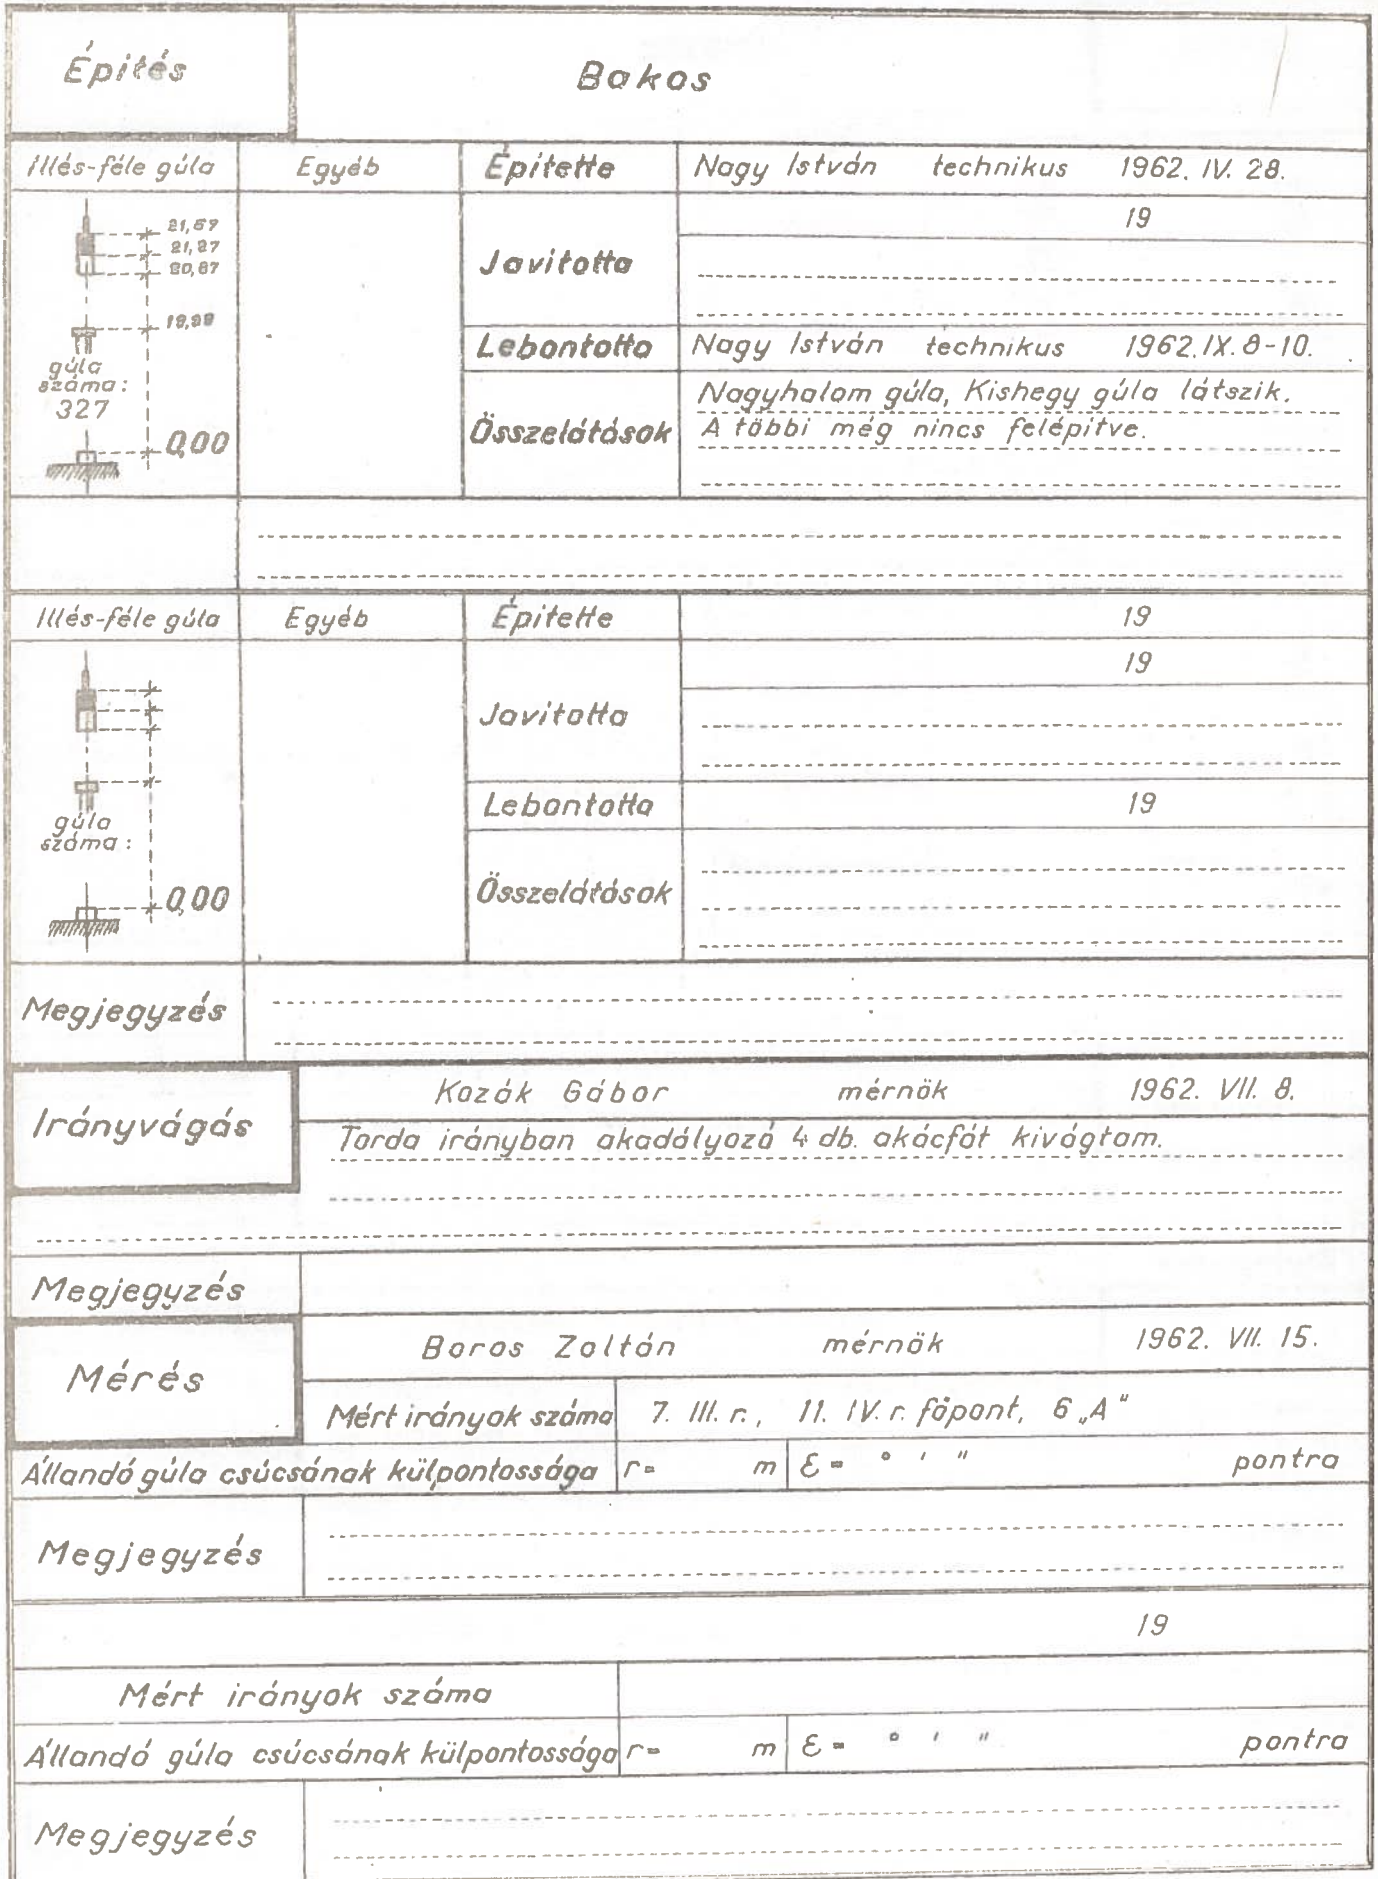 Építés Bakos
Illés-féle gúla Egyéb Építette Nagy István technikus 1962. IV. 28.
21,57
21,27
20,87
19,98
gúla
száma:
327
0,00
19
Javította
Lebontotta Nagy István technikus 1962. IX. 8-10.
Összelátások Nagyhalom gúla, Kishegy gúla látszik.
A többi még nincs felépitve.
Illés-féle gúla Egyéb Építette 19
19
Javította
gúla
száma:
0,00
Lebontotta 19
Összelátások
Megjegyzés
Irányvágás Kozák Gábor mérnök 1962. VII. 8.
Torda irányban akadályozó 4 db. akácfát kivágtam.
Megjegyzés
Mérés Boros Zoltán mérnök 1962. VII. 15.
Mért irányok száma 7. III. r., 11. IV. r. főpont, 6 „A"
Állandó gúla csúcsának külpontossága r= m ε= ° ' " pontra
Megjegyzés
19
Mért irányok száma
Állandó gúla csúcsának külpontossága r= m ε= ° ' " pontra
Megjegyzés